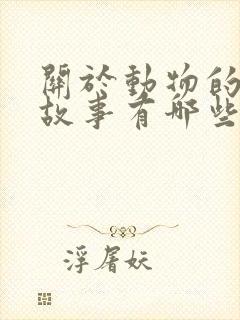 關於動物的
故事有哪些
浮屠妖